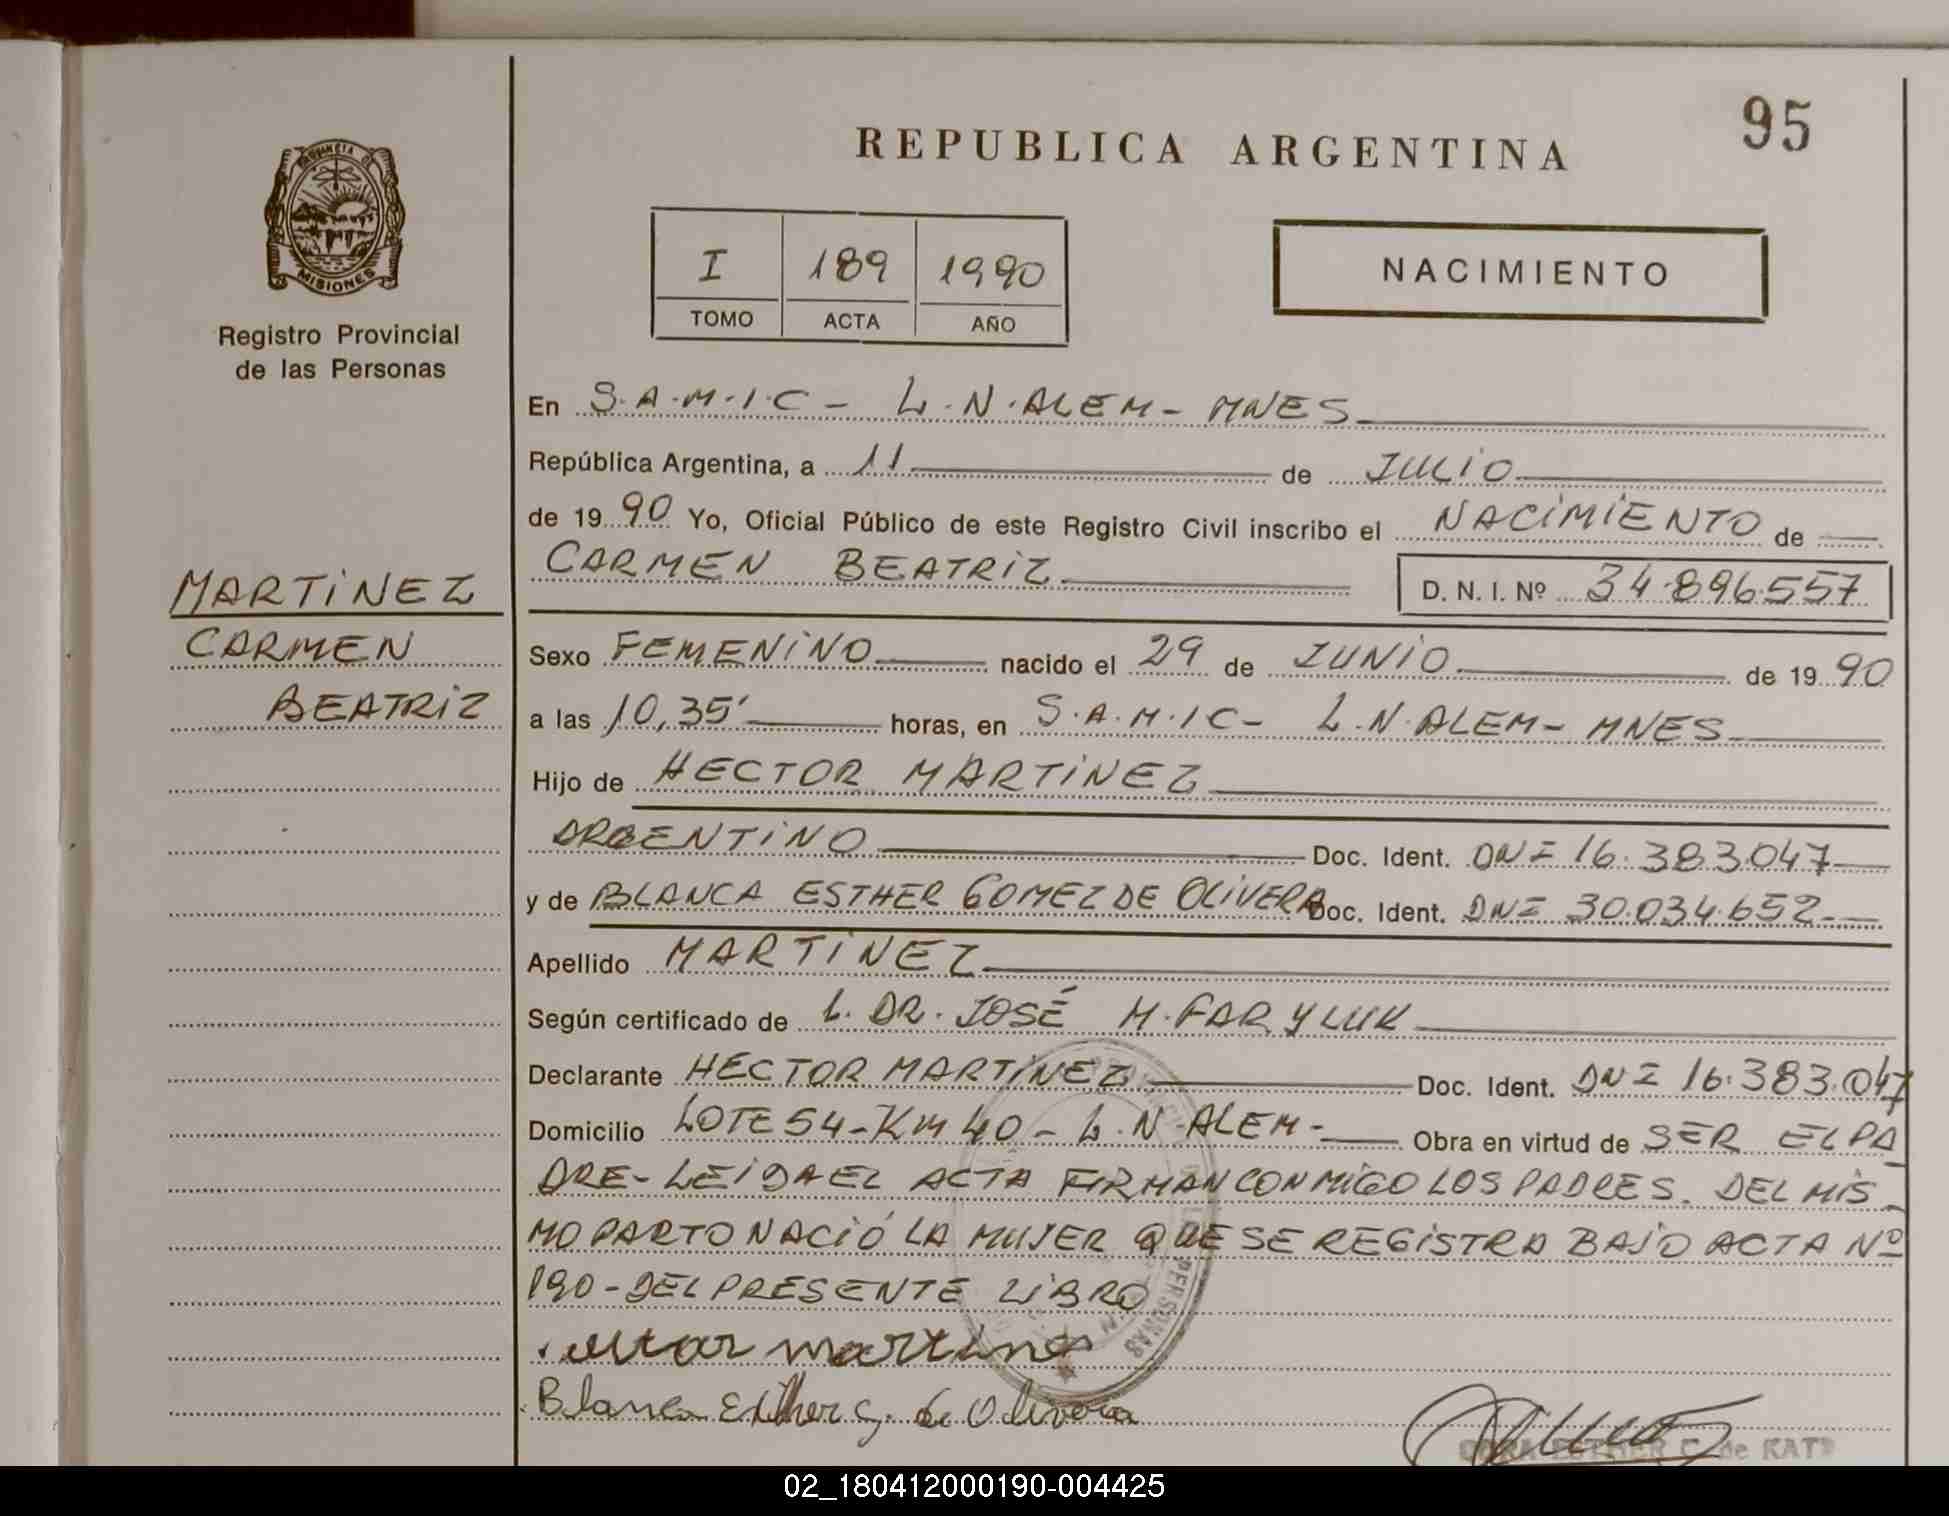 95
REPUBLICA ARGENTINA
PROVINCIA DE
MISIONES
Registro Provincial
de las Personas
I 189 1990
TOMO ACTA AÑO
NACIMIENTO
En S.A.M.I.C - L.N.ALEM - MNES
República Argentina, a 11 de JULIO
de 1990 Yo, Oficial Público de este Registro Civil inscribo el NACIMIENTO de
CARMEN BEATRIZ D. N. I. Nº 34.896.557
MARTINEZ
CARMEN
BEATRIZ
Sexo FEMENINO nacido el 29 de JUNIO de 1990
a las 10,35' horas, en S.A.M.I C - L.N.ALEM - MNES
Hijo de HECTOR MARTINEZ
ARGENTINO Doc. Ident. DNI 16.383.047
y de BLANCA ESTHER GOMEZ DE OLIVERA Doc. Ident. DNI 30.034.652
Apellido MARTINEZ
Según certificado de L. DR. JOSÉ M. FARYLUK
Declarante HECTOR MARTINEZ Doc. Ident. DNI 16.383.047
Domicilio LOTE 54 - Km 40 - L.N.ALEM - Obra en virtud de SER EL PA
DRE - LEIDA EL ACTA FIRMAN CONMIGO LOS PADRES. DEL MIS
MO PARTO NACIÓ LA MUJER QUE SE REGISTRA BAJO ACTA Nº
190 - DEL PRESENTE LIBRO
martine
Blanca Esther G. de Olivera
ESTHER C. de KATZ
02_180412000190-004425